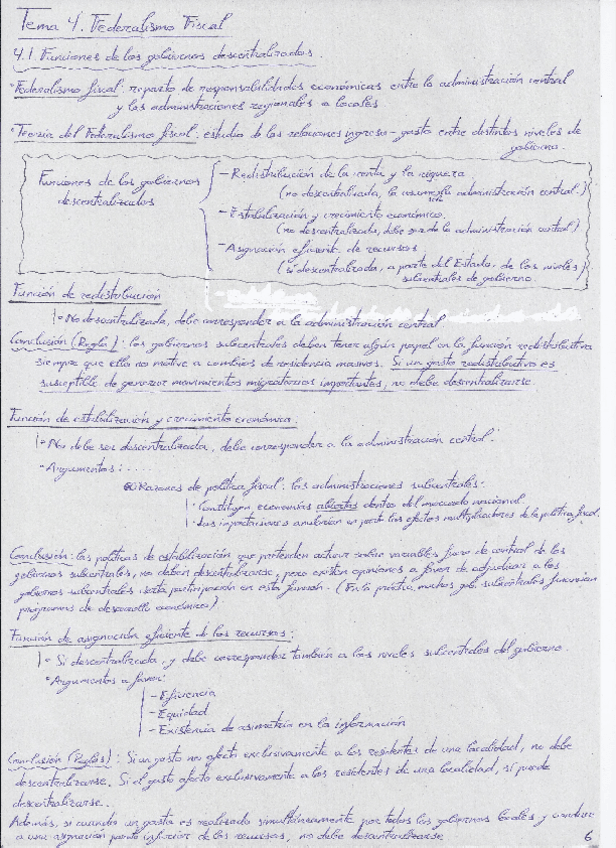 Tema 4. Federalismo Fiscal
4.1. Funciones de los gobiernos descentralizados
• Federalismo fiscal: reparto de responsabilidades económicas entre la administración central
y las administraciones regionales o locales
• Teoría del Federalismo fiscal: estudio de las relaciones ingreso - gasto entre distintos niveles de
gobierno.
Funciones de los gobiernos
descentralizados
- Redistribución de la renta y la riqueza
(no descentralizada, la asume la administración central.)
- Estabilización y crecimiento económico.
(no descentralizada, debe ser de la administración central)
- Asignación eficiente de recursos
(sí descentralizada, a parte del Estado, de los niveles
subcentrales de gobierno.
Función de redistribución
• No descentralizada, debe corresponder a la administración central.
Conclusión (Regla): los gobiernos subcentrales deben tener algún papel en la función redistributiva
siempre que ello no motive a cambios de residencia masivos. Si un gasto redistributivo es
susceptible de generar movimientos migratorios importantes, no debe descentralizarse.
Función de estabilización y crecimiento económico.
• No debe ser descentralizada, debe corresponder a la administración central.
• Argumentos: .....
Razones de política fiscal: las administraciones subcentrales:
· Constituyen economías abiertas dentro del mercado nacional.
· Las importaciones anularían en parte los efectos multiplicadores de la política fiscal.
Conclusión: las políticas de estabilización que pretenden actuar sobre variables fuera de control de los
gobiernos subcentrales, no deben descentralizarse, pero existen opiniones a favor de adjudicar a los
gobiernos subcentrales cierta participación en esta función. (En la práctica, muchos gob. subcentrales financian
programas de desarrollo económico).
Función de asignación eficiente de los recursos:
• Sí descentralizada, y debe corresponder también a los niveles subcentrales del gobierno.
• Argumentos a favor:
- Eficiencia
- Equidad
- Existencia de asimetría en la información
Conclusión (Reglas): Si un gasto no afecta exclusivamente a los residentes de una localidad, no debe
descentralizarse. Si el gasto afecta exclusivamente a los residentes de una localidad, sí puede
descentralizarse...
Además, si cuando un gasto es realizado simultáneamente por todos los gobiernos locales y conduce
a una asignación inferior de los recursos, no debe descentralizarse
6